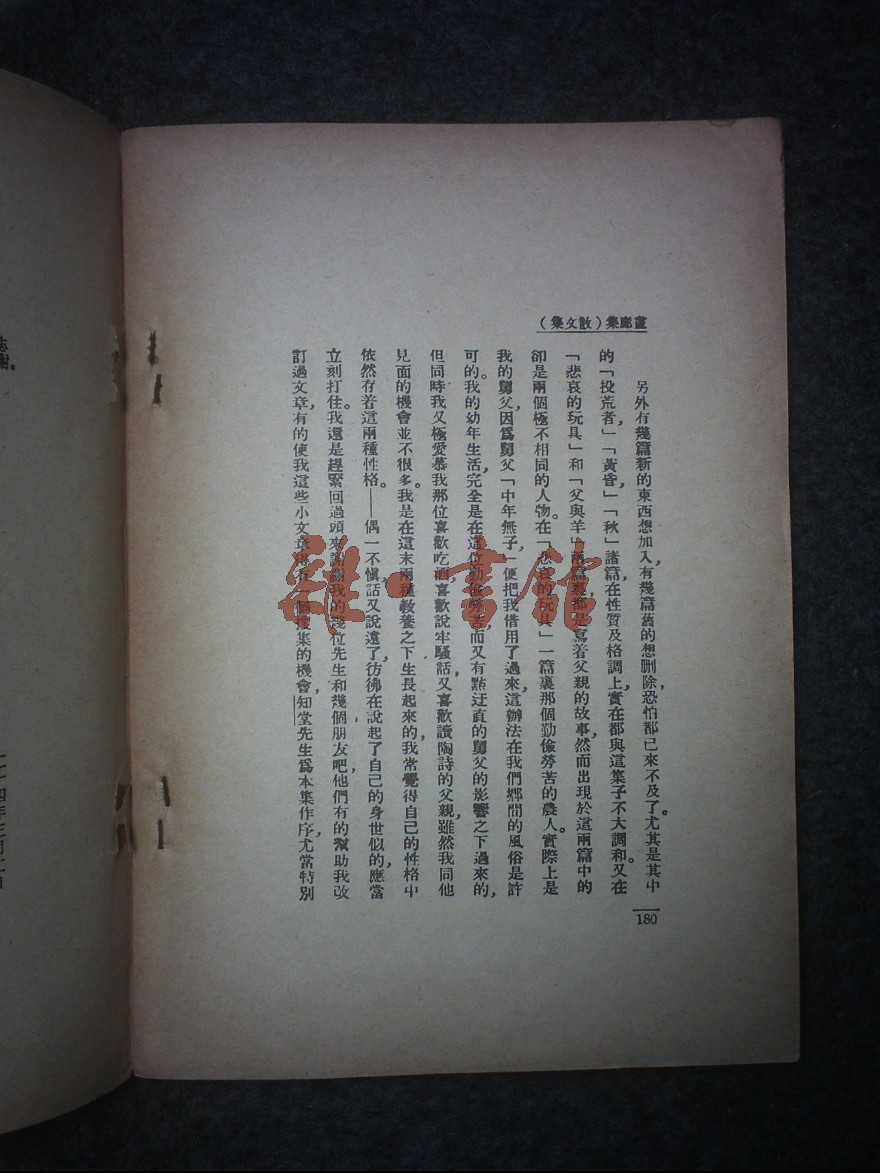 畫廊集(散文集)
另外有幾篇新的東西想加入,有幾篇舊的想刪除,恐怕都已來不及了。尤其是其中
的「投荒者」「黃昏」「秋」諸篇,在性質及格調上實在都與這集子不大調和。又在
「悲哀的玩具」和「父與羊」兩篇裏,都是寫着父親的故事,然而出現於這兩篇中的
卻是兩個極不相同的人物。在「悲哀的玩具」一篇裏那個勤儉勞苦的農人,實際上是
我的舅父,因爲舅父「中年無子」便把我借用了過來,這辦法在我們鄉間的風俗是許
可的。我的幼年生活,完全是在這位勤儉勞苦而又有點迂直的舅父的影響之下過來的,
但同時我又極愛慕我那位喜歡吃酒,喜歡說牢騷話,又喜歡讀陶詩的父親,雖然我同他
見面的機會並不很多。我是在這末兩種教養之下生長起來的,我常覺得自己的性格中
依然存着這兩種性格。——偶一不愼,話又說遠了,彷彿在說起了自己的身世似的,應當
立刻打住。我還是趕緊回過頭來謝謝我的幾位先生和幾個朋友吧,他們有的幫助我改
訂過文章,有的使我這些小文章得有一個搜集的機會,知堂先生爲本集作序,尤當特別
180
志謝。
二十四年三月二日
雜·書館